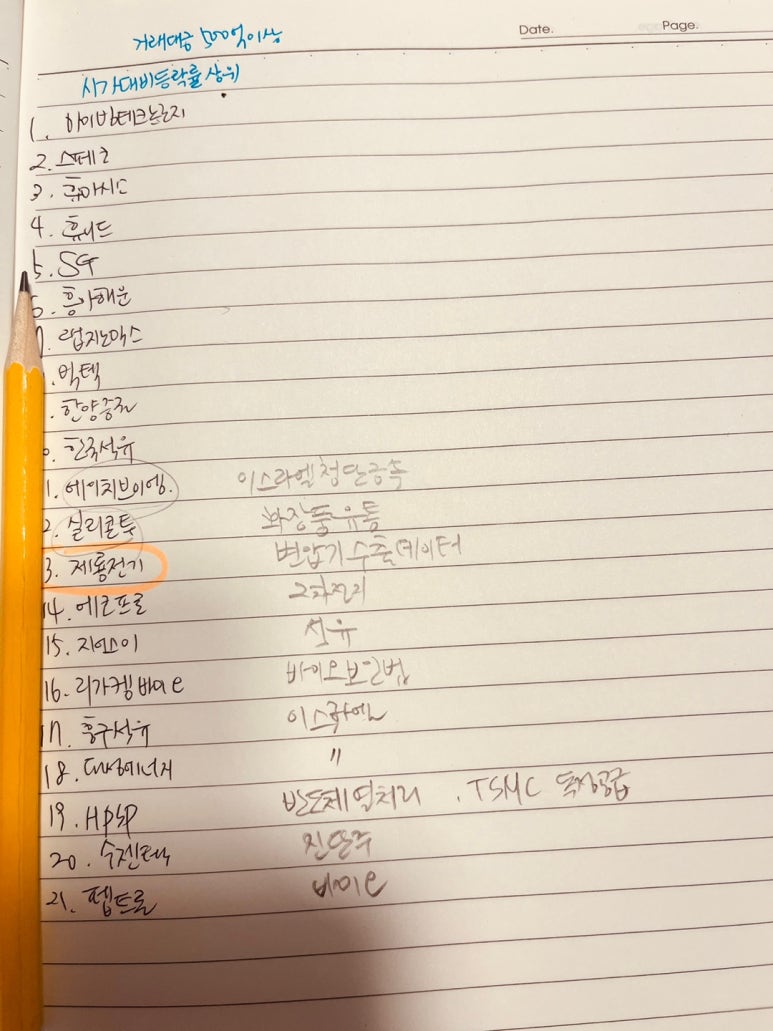 Date. Page.
거래대금 500억이상
시가대비등락률상위
1. 하이빔테크놀로지
2. 스페코
3. 휴마시스
4. 휴니드
5. SG
6. 흥아해운
7. 랩지노믹스
. 빅텍
. 한양증권
0. 한국석유
1. 에이치브이엠. 이스라엘첨단금속
2. 실리콘투 화장품유통
3. 제룡전기 변압기수출데이터
14. 에코프로 2차전지
15. 지에스이 석유
16. 리가켐바이오 바이오보안법
17. 흥구석유 이스라엘
18. 대성에너지 "
19. HPSP 반도체열처리 . TSMC 독점공급
20. 수젠텍 진단주
21. 펩트론 바이오